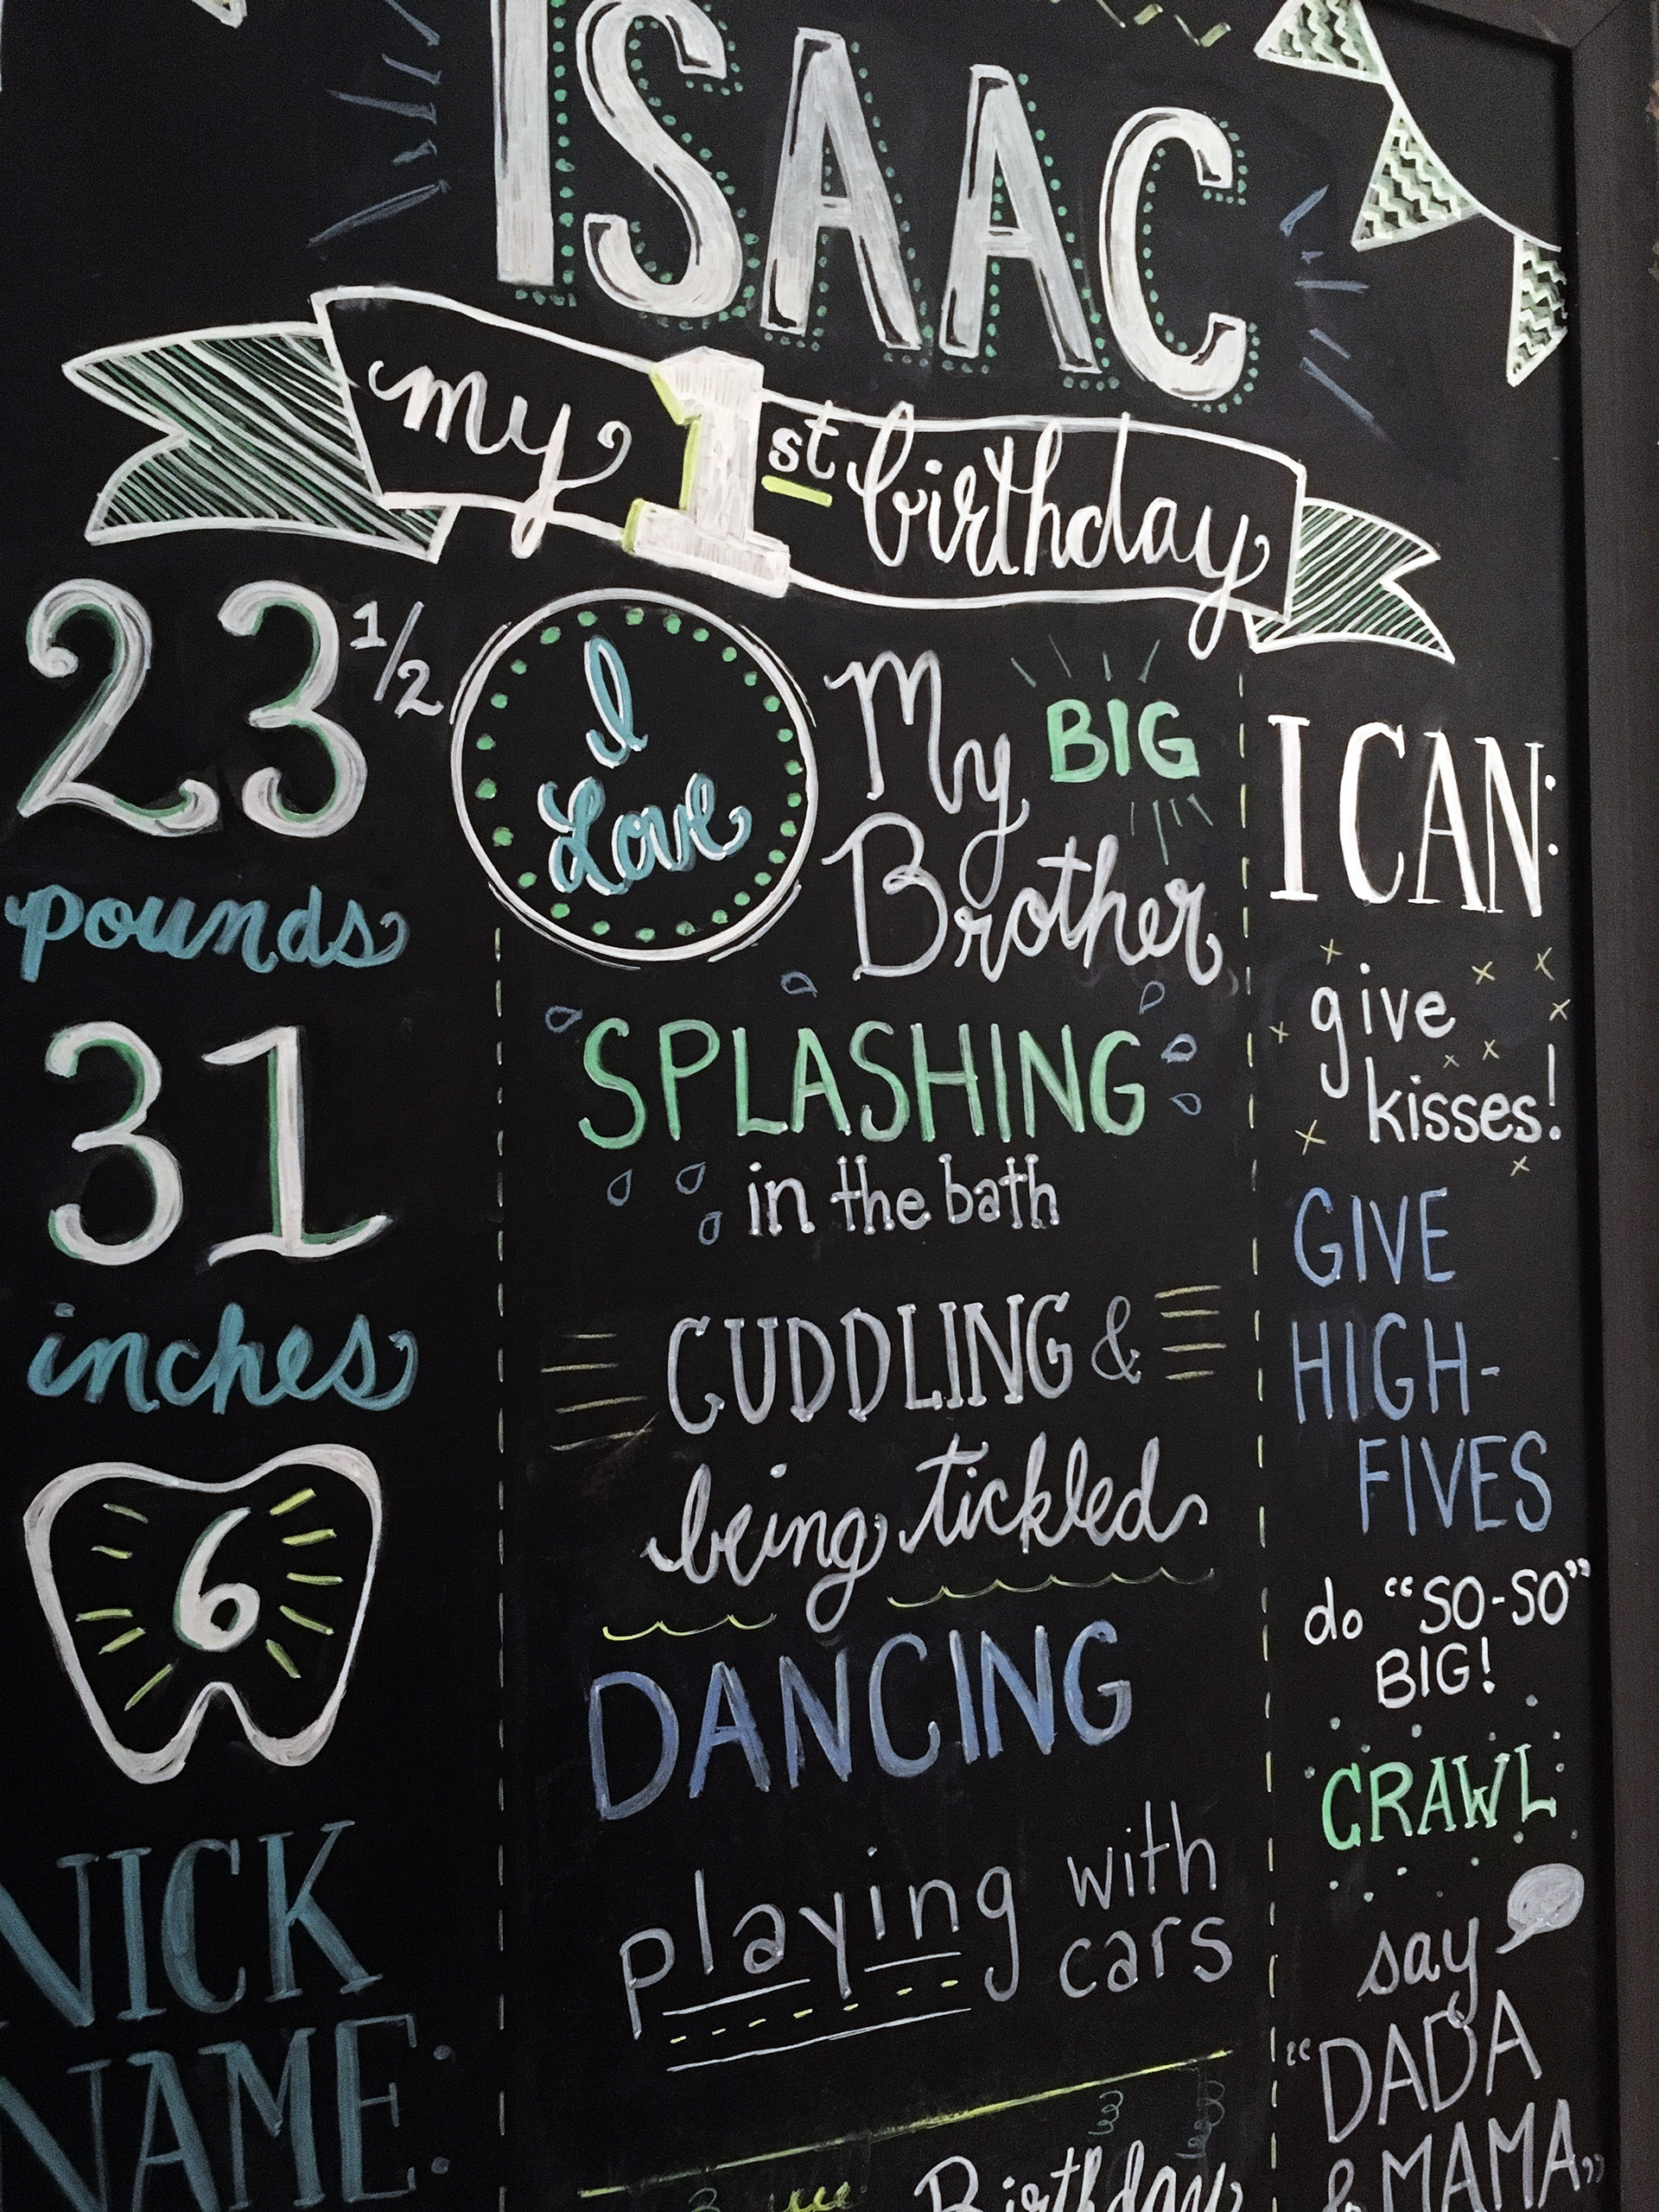 ISAAC
my 1st birthday
23 1/2
pounds
31
inches
6
NICK
NAME:
I
Love
My BIG
Brother
SPLASHING
in the bath
CUDDLING &
being tickled
DANCING
playing with
cars
Birthday
I CAN:
give
kisses!
GIVE
HIGH-
FIVES
do "SO-SO"
BIG!
CRAWL
say
"DADA
& MAMA"